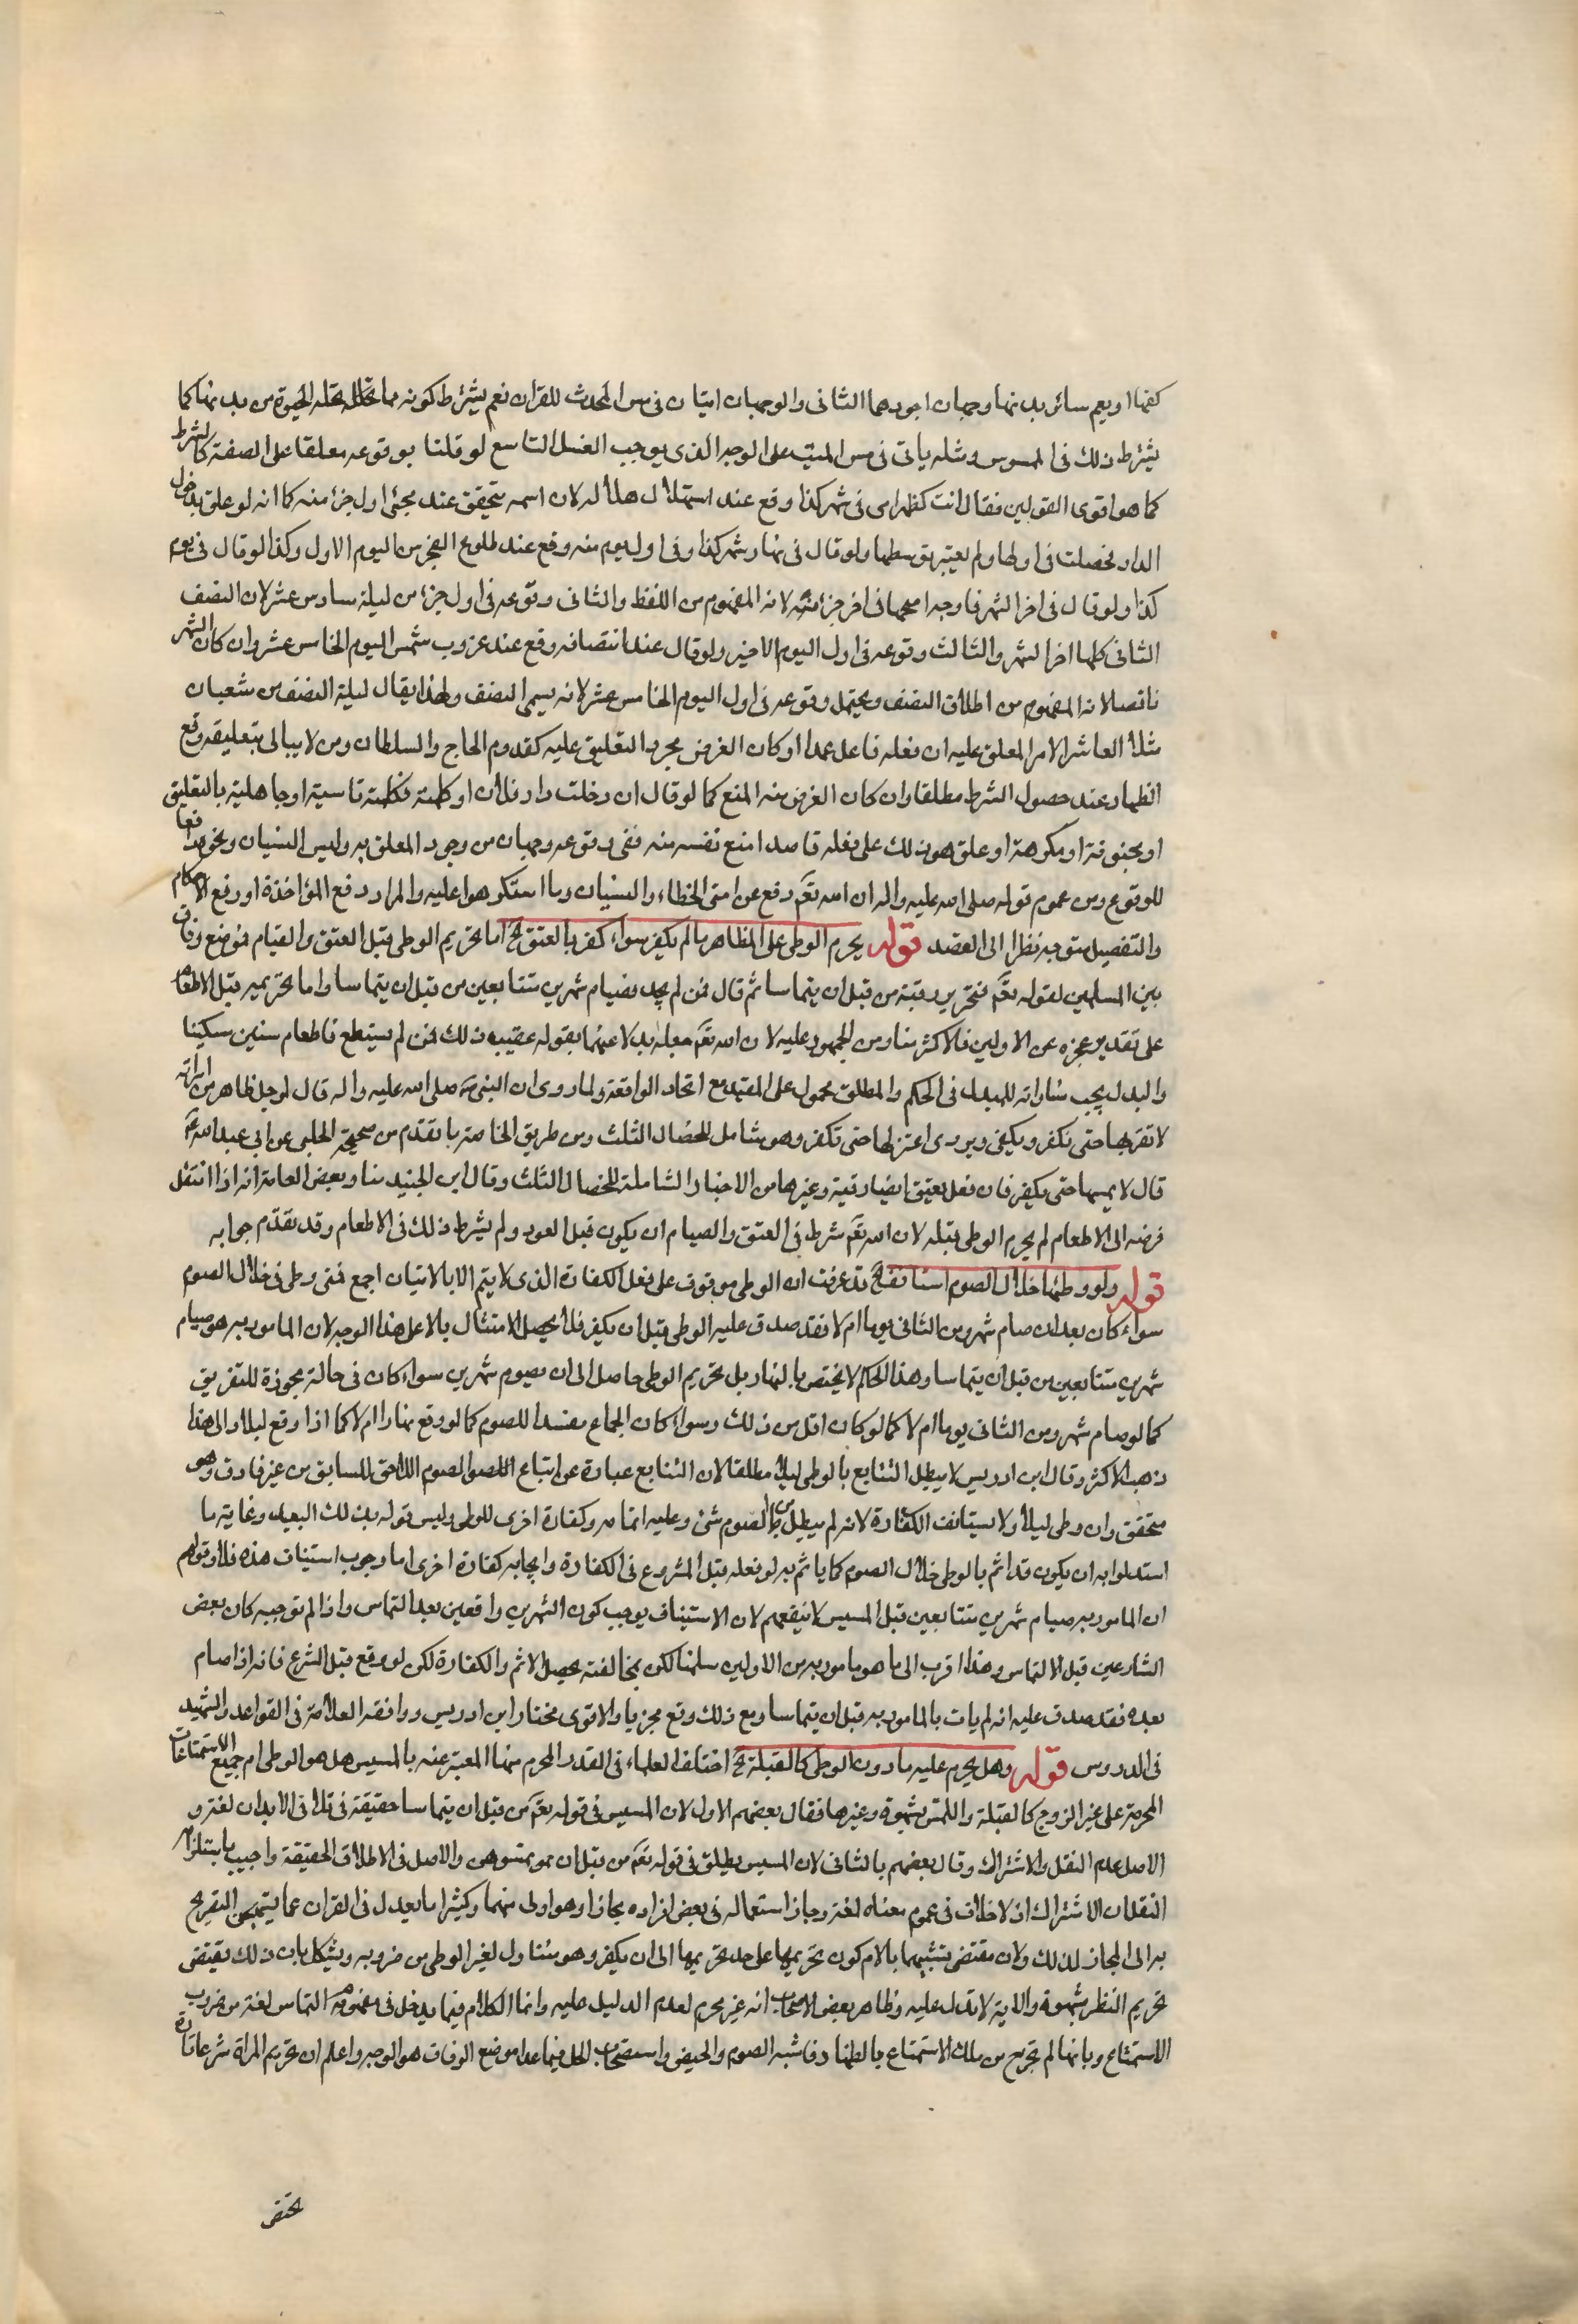 كفها او يعم سائر بدنها وجهان اجودهما الثانى والوجهان اتيان فى مس المحدث للقران نعم يشترط كونه مما تحله الحيوة من بدنها كما
يشترط ذلك فى الممسوس ومثله ياتى فى مس الميت على الوجه الذى يوجب الغسل التاسع لو قلنا بوقوعه معلقا على الصفة كالشرط
كما هو اقوى القولين فقال انت كظهر امى فى شهر كذا وقع عند استهلال هلاله لان اسمه يتحقق عند مجئ اول جزء منه كما انه لو علق بدخول
الدار فحصلت فى اولها ولم يعتبر توسطها ولو قال فى نهار شهر كذا وفى اول يوم منه وقع عند طلوع الفجر من اليوم الاول وكذا لو قال فى يوم
كذا ولو قال فى اخر الشهر فاوجه اصحها فى اخر جزء منه لانه المفهوم من اللفظ والثانى وقوعه فى اول جزء من ليلة سادس عشر لان النصف
الثانى كلها اخر الشهر والثالث وقوعه فى اول اليوم الاخير ولو قال عند انتصافه وقع عند غروب شمس اليوم الخامس عشر وان كان الشهر
ناقصا لانه المفهوم من اطلاق النصف ويحتمل وقوعه فى اول اليوم الخامس عشر لانه يسمى النصف ولهذا يقال ليلة النصف من شعبان
مثلا العاشر الامر المعلق عليه ان فعله فاعل عمدا او كان الغرض مجرد التعليق عليه كقدوم الحاج والسلطان ومن لا يبالى بتعليقه وقع
الظهار عند حصول الشرط مطلقا وان كان الغرض منه المنع كما لو قال ان دخلت دار فلان او كلمته فكلمته ناسية او جاهلية بالتعليق
او مجنونة او مكرهة او علق هو ذلك على فعله قاصدا منع نفسه منه ففى وقوعه وجهان من وجود المعلق به وليس النسيان ونحوه دافعا
للوقوع ومن عموم قوله صلى الله عليه واله ان الله تعم رفع عن امتى الخطاء والنسيان وما استكرهوا عليه والمراد رفع المؤاخذة او رفع الاحكام
والتفصيل متوجه نظرا الى القصد قوله يحرم الوطى على المظاهر ما لم يكفر سواء كفر بالعتق الخ اما تحريم الوطى قبل العتق والقيام فموضع وفاق
بين المسلمين لقوله تعم فتحرير رقبة من قبل ان يتماسا ثم قال فمن لم يجد فصيام شهرين متتابعين من قبل ان يتماسا واما تحريمه قبل الاطعام
على تقدير عجزه عن الاولين فالاكثر منا ومن الجمهور عليه لان الله تعم جعله بدلا عنهما بقوله عقيب ذلك فمن لم يستطع فاطعام ستين مسكينا
والبدل يجب مساواته للمبدل فى الحكم والمطلق محمول على المقيد مع اتحاد الواقعة ولما روى ان النبى صلى الله عليه واله قال لرجل ظاهر من امراته
لا تقربها حتى تكفر ويكفى ويروى اعتزلها حتى تكفر وهو شامل للخصال الثلث ومن طريق الخاصة ما تقدم من صحيحة الحلبى عن ابى عبد الله ع
قال لا يمسها حتى يكفر فان فعل يعتق ايضا رقبة وغيرها من الاخبار الشاملة للخصال الثلث وقال ابن الجنيد منا وبعض العامة انه اذا انتقل
فرضه الى الاطعام لم يحرم الوطى قبله لان الله تعم شرط فى العتق والصيام ان يكون قبل العود ولم يشرط ذلك فى الاطعام وقد تقدم جوابه
قوله ولو وطئها خلال الصوم استانف الخ قد عرفت ان الوطى موقوف على فعل الكفارة الذى لا يتم الا بالاتيان اجمع فمتى وطى فى خلال الصوم
سواء كان بعد ان صام شهر ومن الثانى يوما ام لا فقد صدق عليه الوطى قبل ان يكفر فلا يحصل الامتثال بالاعلى هذا الوجه لان المامور به هو صيام
شهرين متتابعين من قبل ان يتماسا وهذا الحكم لا يختص بالنهار بل تحريم الوطى حاصل الى ان يصوم شهرين سواء كان فى حالة مجوزة للتفريق
كما لو صام شهر ومن الثانى يوما ام لا كما لو كان اقل من ذلك وسواء كان الجماع مفسدا للصوم كما لو وقع نهارا ام لا كما اذا وقع ليلا والى هذا
ذهب الاكثر وقال ابن ادريس لا يبطل التتابع بالوطى ليلا مطلقا لان التتابع عبارة عن اتباع الصوم اللاحق للسابق من غير فارق وهو
متحقق وان وطى ليلا ولا يستانف الكفارة لانه لم يبطل من الصوم شئ وعليه اتمامه وكفارة اخرى للوطى وليس قوله بذلك البعيد وغاية ما
استدلوا به ان يكون قد اثم بالوطى خلال الصوم كما ياثم به لو فعله قبل الشروع فى الكفارة وايجابه كفارة اخرى اما وجوب استيناف هذه فلا وقولهم
ان المامور به صيام شهرين متتابعين قبل المسيس لا ينفعهم لان الاستيناف يوجب كون الشهرين واقعين بعد التماس واذا لم نوجبه كان بعض
الشهرين قبل الالتماس وهذا اقرب الى ما هو مامور به من الاولين سلمنا لكن بمخالفته يحصل الاثم والكفارة لكن لو وقع قبل الشرع فانه اذا صام
بعده فقد صدق عليه انه لم يات بالمامور به قبل ان يتماسا ومع ذلك وقع مجزيا والاقوى مختار ابن ادريس ووافقه العلامة فى القواعد والشهيد
فى الدروس قوله وهل يحرم عليه ما دون الوطى كالقبلة الخ اختلف العلماء فى القدر المحرم منها المعبر عنه بالمسيس هل هو الوطى ام جميع الاستمتاعات
المحرمة على غير الزوج كالقبلة واللمس بشهوة وغيرها فقال بعضهم الاول لان المسيس فى قوله تعم من قبل ان يتماسا حقيقة فى تلاقى الابدان لغة و
الاصل عدم النقل والاشتراك وقال بعضهم بالثانى لان المسيس يطلق فى قوله تعم من قبل ان تمسوهن والاصل فى الاطلاق الحقيقة واجيب باستلزام
النقل ان الاشتراك اذ لا خلاف فى عموم معناه لغة وجاز استعماله فى بعض افراده مجازا وهو اولى منهما وكثيرا ما يعدل فى القران عما يستهجن التصريح
به الى المجاز لذلك ولان مقتضى تشبيهها بالام كون تحريمها على حد تحريمها الى ان يكفر وهو متناول لغير الوطى من ضروبه ويشكل بان ذلك يقتضى
تحريم النظر بشهوة والاية لا تدل عليه وظاهر بعض الاصحاب انه غير محرم لعدم الدليل عليه وانما الكلام فيما يدخل فى مفهوم التماس لغة من ضروب
الاستمتاع وبانها لم تخرج من ملك الاستمتاع بالظهار فاشبه الصوم والحيض واستصحاب الحل فيما عدا موضع الوفاق هو الوجه واعلم ان تحريم المراة شرعا تارة
يختص